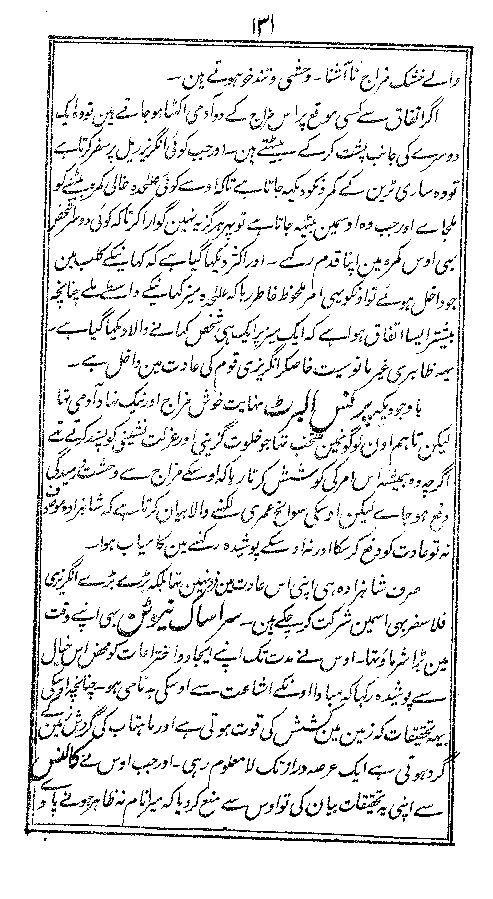 ۱۳۱
والے خشک مزاج نا آشنا ۔ وحشی و تند خو ہوتے ہین ۔
اگر اتفاق سے کسی موقع پر اس مزاج کے دو آدمی اکٹھا ہو جاتے ہین تو وہ ایک
دوسرے کی جانب پشت کر کے بیٹھتے ہین ۔ اور جب کوئی انگریز ریل پر سفر کرتا ہے
تو وہ ساری ٹرین کے کمرونکو دیکھ جاتا ہے تاکہ اوسے کوئی علٰحدہ خالی کمرہ بیٹھنے کو
ملجاے اور جب وہ اوسمین بیٹھ جاتا ہے تو پھر ہرگز یہ نہین گوارا کرتا کہ کوئی دوسرا شخص
بھی اوس کمرہ مین اپنا قدم رکھے ۔ اور اکثر دیکھا گیا ہے کہ کھانیکے کلب مین
جو داخل ہوئے تو اونکو یہی امر ملحوظ خاطر رہا کہ علٰحدہ میز کھانیکے واسطے ملے چنانچہ
بیشتر ایسا اتفاق ہوا ہے کہ ایک میز پر ایک ہی شخص کھانے والا دیکھا گیا ہے ۔
یہ ظاہری غیر مانوسیت خاصکر انگریزی قوم کی عادت مین داخل ہے ۔
باوجودیکہ پرنس البرٹ نہایت خوش مزاج اور نیک نہاد آدمی تھا
لیکن تاہم اون لوگونمین منتخب تھا جو خلوت گزینی اور عزلت نشینی کو پسند کرتے تھے
اگرچہ وہ ہمیشہ اس امر کی کوشش کرتا رہا کہ اوسکے مزاج سے وحشت و رمیدگی
دفع ہو جاے لیکن اوسکی سوانح عمری لکھنے والا بیان کرتا ہے کہ شاہزادہ موصوف
نہ تو عادت کو دفع کر سکا اور نہ اوسکے پوشیدہ رکھنے مین کامیاب ہوا ۔
صرف شاہزادہ ہی اپنی اس عادت مین فرد نہین تھا بلکہ بڑے بڑے انگریزی
فلاسفر بھی اسمین شرکت کر چکے ہین ۔ سر اساک نیوٹن بھی اپنے وقت
مین بڑا شرماؤ تھا ۔ اوس نے مدت تک اپنے ایجاد و اختراعات کو محض اس خیال
سے پوشیدہ رکھا کہ مبادا اونکے اشاعت سے اوسکی بدنامی ہو ۔ چنانچہ اوسکی
یہ تحقیقات کہ زمین مین کشش کی قوت ہوتی ہے اور ماہتاب کی گردش زمین کے
گرد ہوتی ہے ایک عرصہ دراز تک لا معلوم رہی ۔ اور جب اوس نے کالنس
سے اپنی یہ تحقیقات بیان کی تو اوس سے منع کر دیا کہ میرا نام نہ ظاہر ہونے پاے